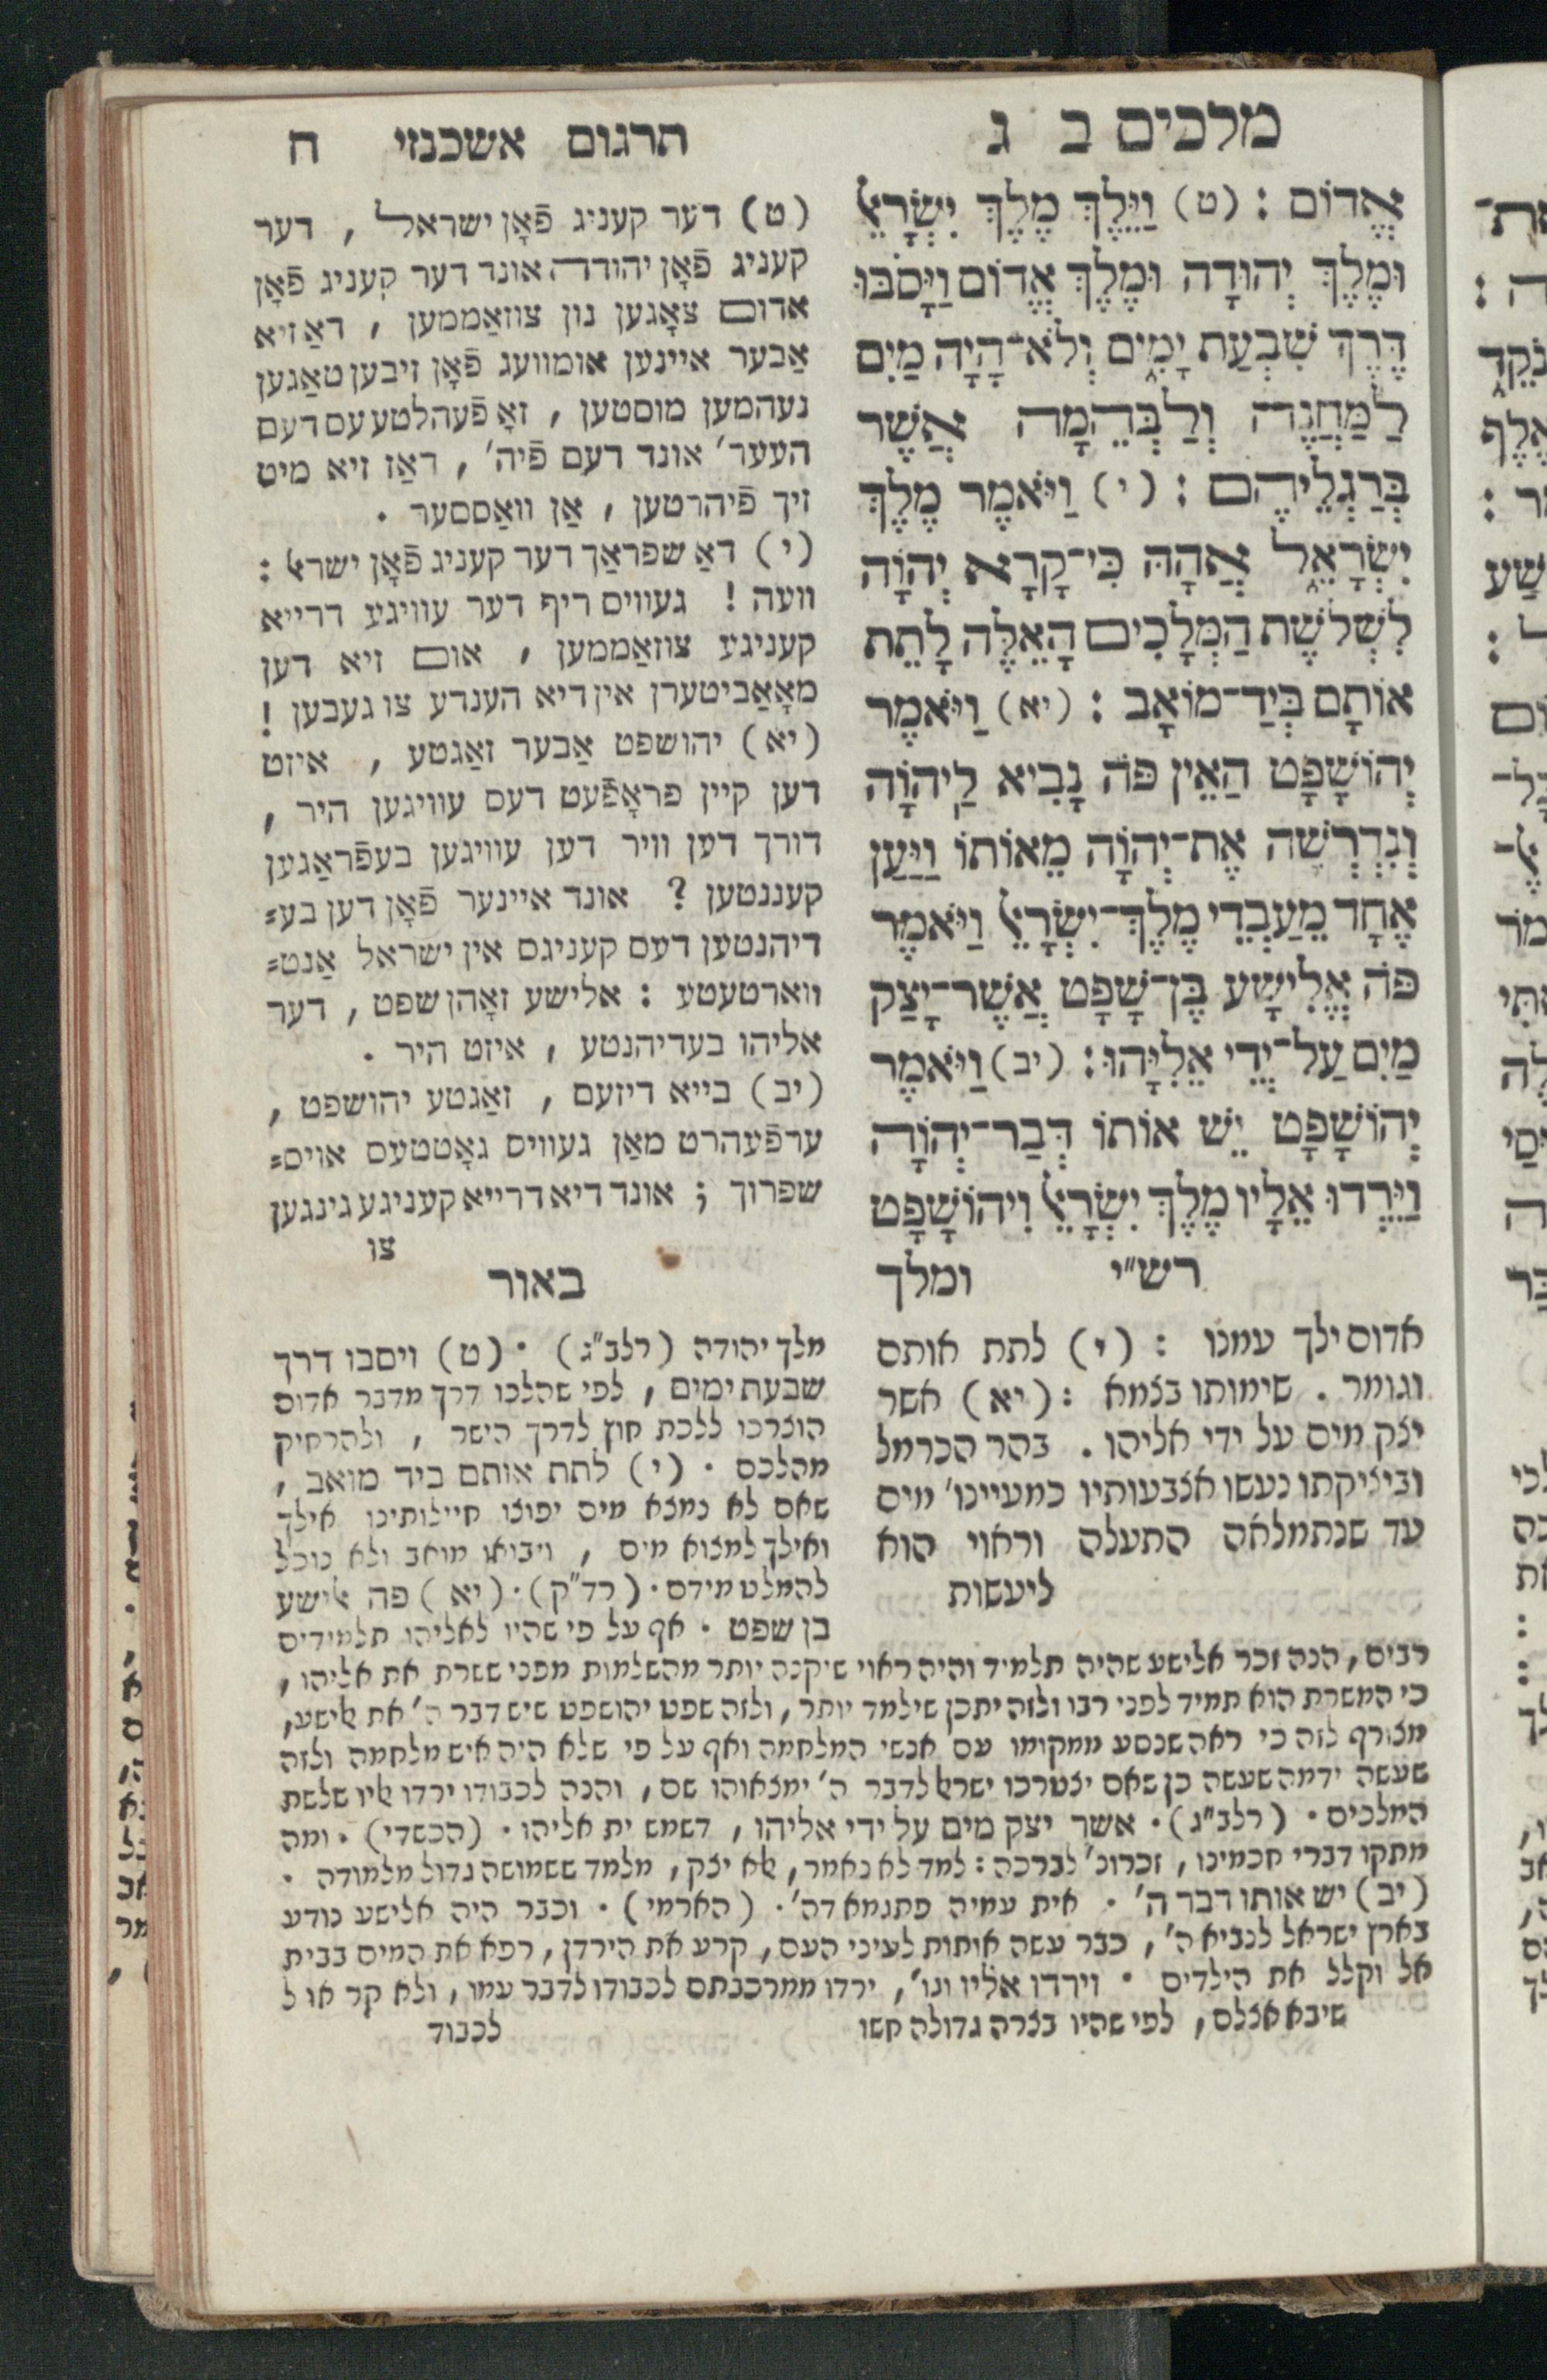 מלכים ב ג
אֱדוֹם : (ט) וַיֵּלֶךְ מֶלֶךְ יִשְׂרָאֵל
וּמֶלֶךְ יְהוּדָה וּמֶלֶךְ אֱדוֹם וַיָּסֹבּוּ
דֶּרֶךְ שִׁבְעַת יָמִים וְלֹא־הָיָה מַיִם
לַמַּחֲנֶה וְלַבְּהֵמָה אֲשֶׁר
בְּרַגְלֵיהֶם : (י) וַיֹּאמֶר מֶלֶךְ
יִשְׂרָאֵל אֲהָהּ כִּי־קָרָא יְהוָֹה
לִשְׁלֹשֶׁת הַמְּלָכִים הָאֵלֶּה לָתֵת
אוֹתָם בְּיַד־מוֹאָב : (יא) וַיֹּאמֶר
יְהוֹשָׁפָט הַאֵין פֹּה נָבִיא לַיהוָֹה
וְנִדְרְשָׁה אֶת־יְהוָֹה מֵאוֹתוֹ וַיַּעַן
אֶחָד מֵעַבְדֵי מֶלֶךְ־יִשְׂרָאֵל וַיֹּאמֶר
פֹּה אֱלִישָׁע בֶּן־שָׁפָט אֲשֶׁר־יָצַק
מַיִם עַל־יְדֵי אֵלִיָּהוּ : (יב) וַיֹּאמֶר
יְהוֹשָׁפָט יֵשׁ אוֹתוֹ דְּבַר־יְהוָֹה
וַיֵּרְדוּ אֵלָיו מֶלֶךְ יִשְׂרָאֵל וִיהוֹשָׁפָט
ומלך
תרגום אשכנזי ח
(ט) דער קעניג פֿאָן ישראל , דער
קעניג פֿאָן יהודה אונד דער קעניג פֿאָן
אדום צאָגען נון צוזאַממען , דאַ זיא
אַבער איינען אומוועג פֿאָן זיבען טאַגען
נעהמען מוסטען , זאָ פֿעהלטע עס דעם
העער' אונד דעם פֿיה' , דאַז זיא מיט
זיך פֿיהרטען , אַן וואַססער .
(י) דאַ שפראַך דער קעניג פֿאָן ישראל :
וועה ! געוויס ריף דער עוויגע דרייא
קעניגע צוזאַממען , אום זיא דען
מאָאַביטערן אין דיא הענדע צו געבען !
(יא) יהושפט אַבער זאַגטע , איזט
דען קיין פראָפֿעט דעס עוויגען היר ,
דורך דען וויר דען עוויגען בעפֿראַגען
קעננטען ? אונד איינער פֿאָן דען בע=
דיהנטען דעס קעניגס אין ישראל אַנט=
ווארטעטע : אלישע זאָהן שפט , דער
אליהו בעדיהנטע , איזט היר .
(יב) בייא דיזעם , זאַגטע יהושפט ,
ערפֿעהרט מאַן געוויס גאָטטעס אויס=
שפרוך ; אונד דיא דרייא קעניגע גינגען
צו
רש"י
אדום ילך עמנו : (י) לתת אותם
וגומר . שימותו בצמא : (יא) אשר
יצק מים על ידי אליהו . בהר הכרמל
וביציקתו נעשו אצבעותיו כמעיינו' מים
עד שנתמלאה התעלה וראוי הוא
ליעשות
באור
מלך יהודה (רלב"ג) . (ט) ויסבו דרך
שבעת ימים , לפי שהלכו דרך מדבר אדום
הוצרכו ללכת חוץ לדרך הישר , ולהרחיק
מהלכם . (י) לתת אותם ביד מואב ,
שאם לא נמצא מים יפוצו חיילותינו אילך
ואילך למצוא מים , ויבואו מואב ולא נוכל
להמלט מידם . (רד"ק) . (יא) פה אלישע
בן שפט . אף על פי שהיו לאליהו תלמידים
רבים , הנה זכר אלישע שהיה תלמיד והיה ראוי שיקנה יותר מהשלמות מפני ששרת את אליהו ,
כי המשרת הוא תמיד לפני רבו ולזה יתכן שילמד יותר , ולזה שפט יהושפט שיש דבר ה' את אלישע ,
מצורף לזה כי ראה שנסע ממקומו עם אנשי המלחמה ואף על פי שלא היה איש מלחמה ולזה
שעשה ידמה שעשה כן שאם יצטרכו ישראל לדבר ה' ימצאוהו שם , והנה לכבודו ירדו אליו שלשת
המלכים . (רלב"ג) . אשר יצק מים על ידי אליהו , דשמש ית אליהו . (הכשדי) . ומה
מתקו דברי חכמינו , זכרונ' לברכה : למד לא נאמר , אלא יצק , מלמד ששמושה גדול מלמודה .
(יב) יש אותו דבר ה' . אית עמיה פתגמא דה' . (הארמי) . וכבר היה אלישע נודע
בארץ ישראל לנביא ה' , כבר עשה אותות לעיני העם , קרע את הירדן , רפא את המים בבית
אל וקלל את הילדים . וירדו אליו וגו' , ירדו ממרכבתם לכבודו לדבר עמו , ולא קראו ל
שיבא אצלם , לפי שהיו בצרה גדולה חשו
לכבוד